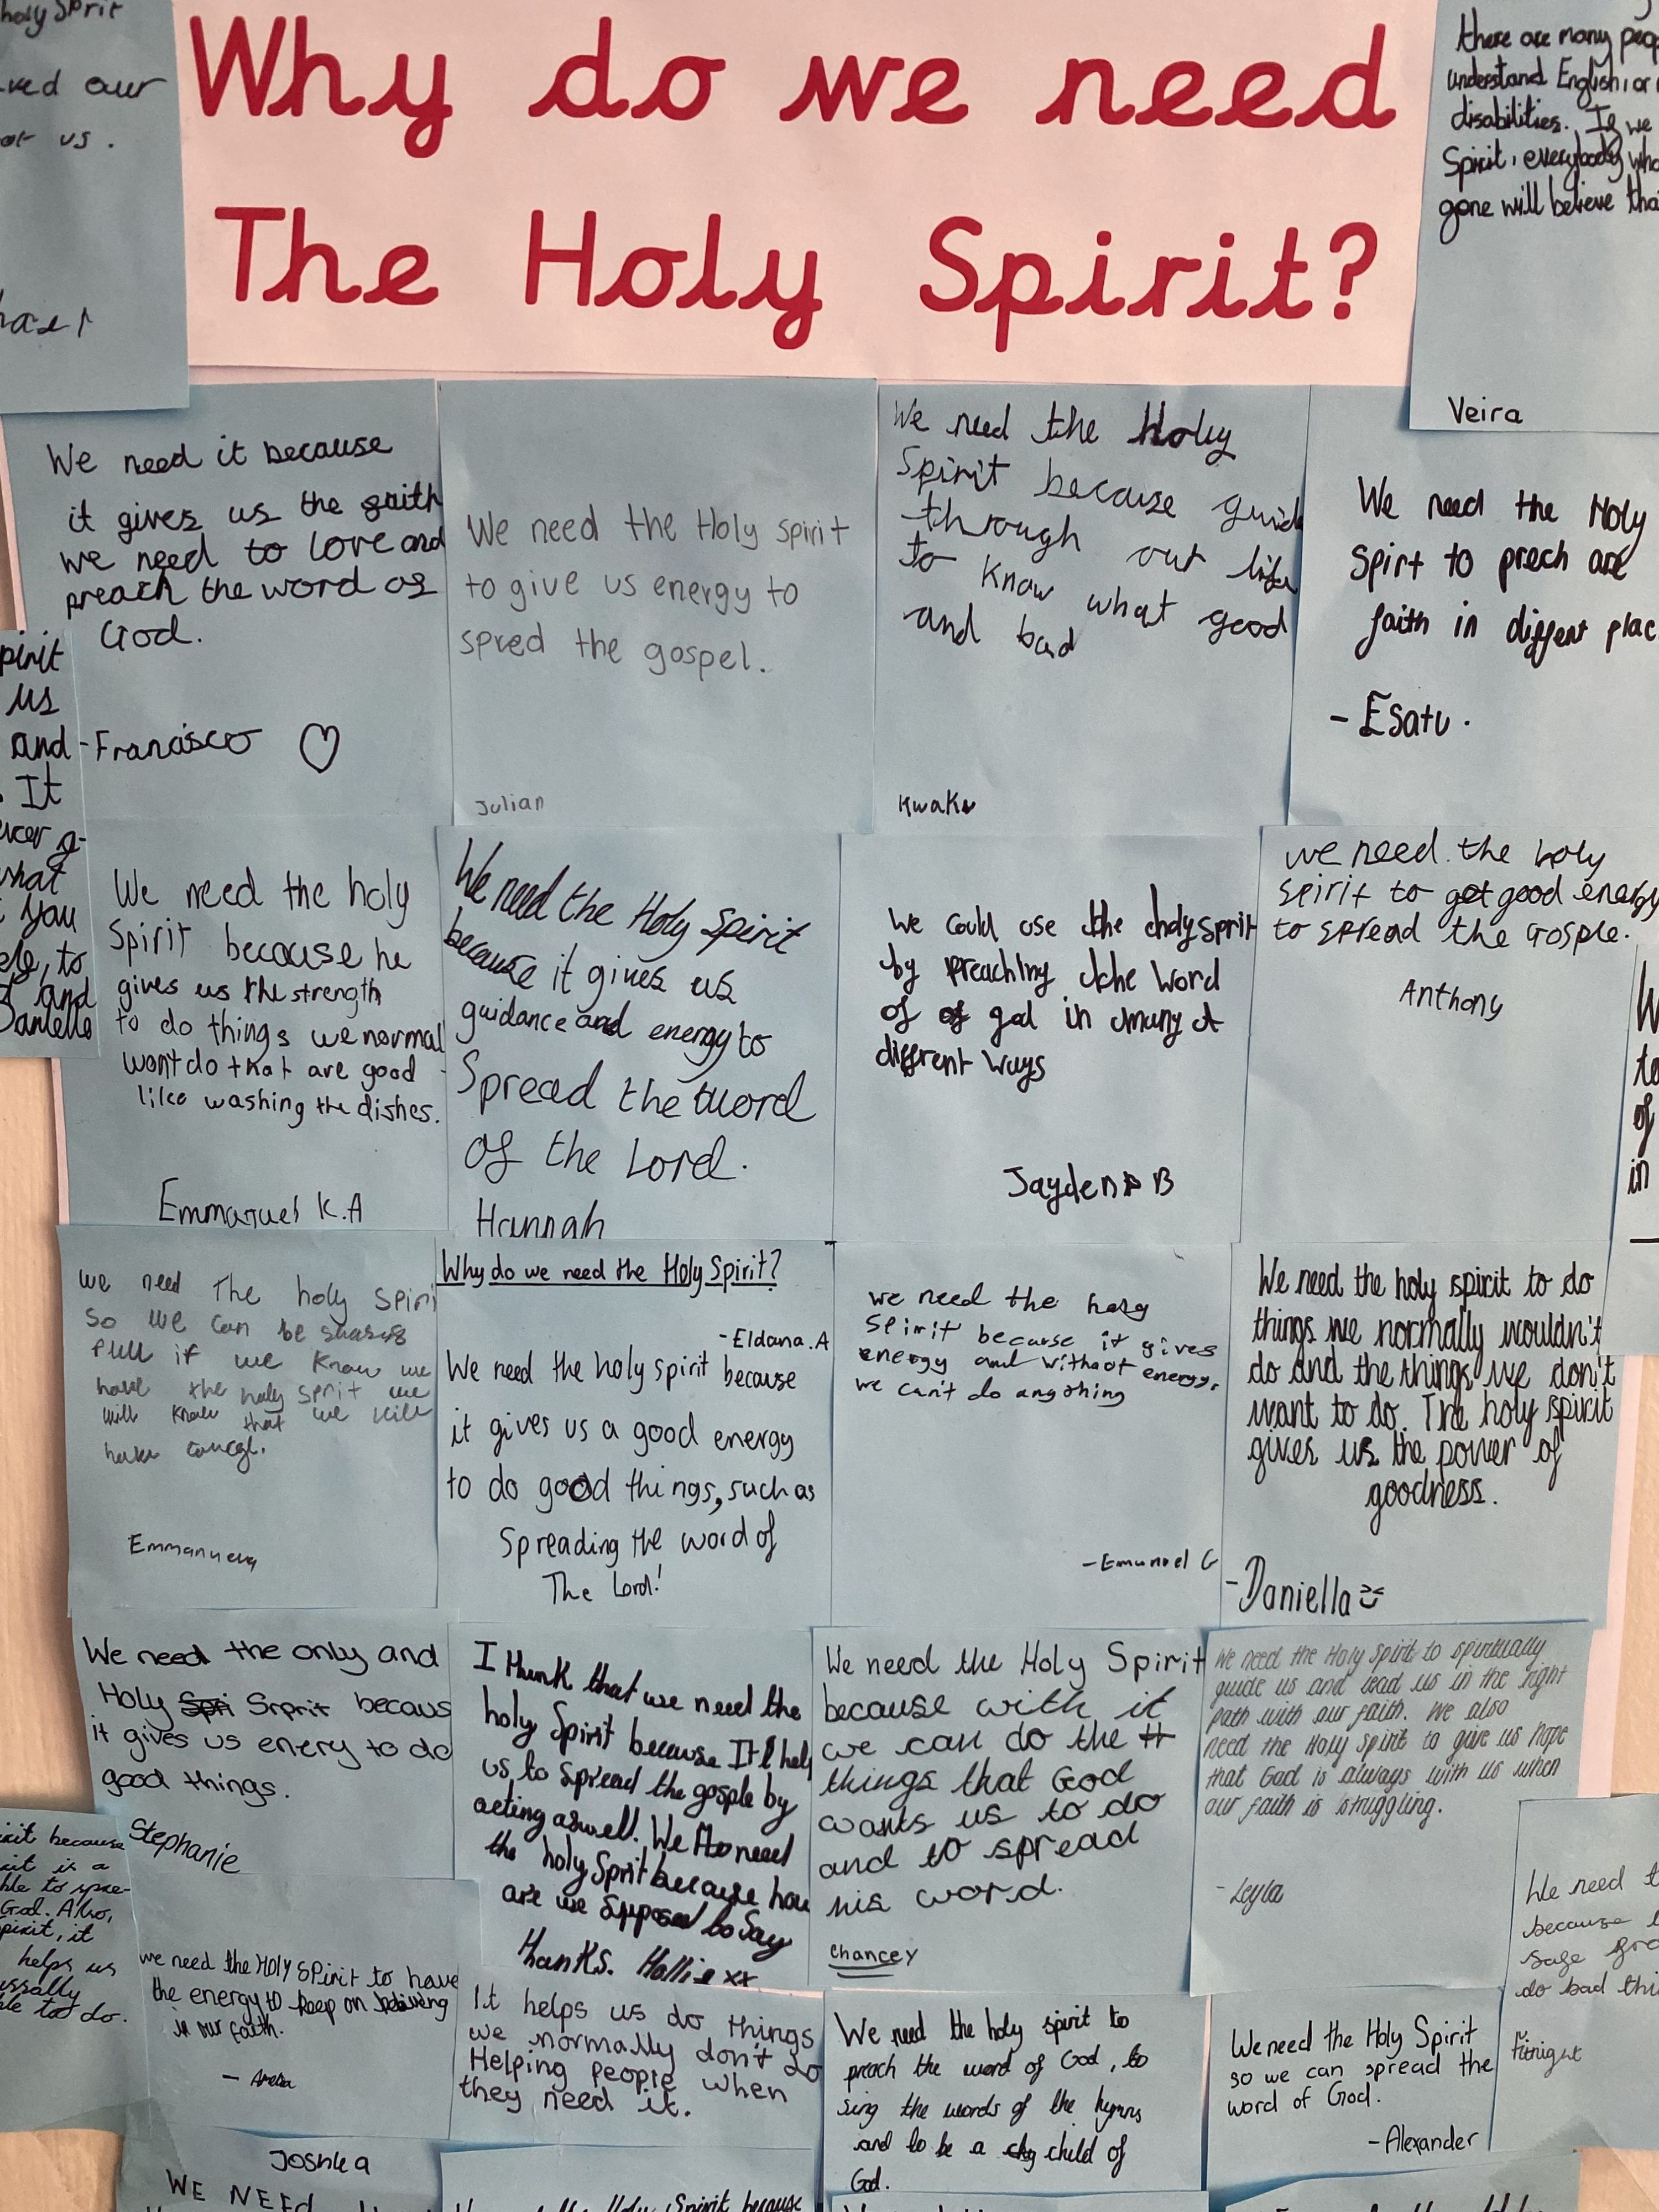 Why do we need
The Holy Spirit?
holy Sprit
our
us.
there are many
understand English, or
disabilities. If we
Spirit, everybody
gone will believe
Veira
We need it because
it gives us the faith
we need to love and
preach the word of
God.
-Francisco ♡
We need the Holy spirit
to give us energy to
spred the gospel.
Julian
We need the Holy
Spirit because guide
through out life
to know what good
and bad
Kwaku
We need the Holy
Spirt to prech are
faith in diffent
- Esatu.
us
and
. It
you
to
and
Danielle
We need the holy
Spirit because he
gives us the strength
to do things we normal
wont do that are good
like washing the dishes.
Emmanuel K.A
We need the Holy Spirit
because it gives us
guidance and energy to
Spread the word
of the Lord.
Hannah
We could use the holy sprit
by preaching the Word
of of god in many
different ways
Jayden B
we need the holy
spirit to get good energy
to spread the Gosple.
Anthony
to
of
in
we need The holy
So we can be
if we know we
have the holy sprit we
will know that we will
have
Why do we need the Holy Spirit?
-Eldana.A
We need the holy spirit because
it gives us a good energy
to do good things, such as
Spreading the word of
The Lord!
we need the
spirit because it gives
energy and without energy,
we can't do anything
-Emunoel G
We need the holy spirit to do
things we normally wouldn't
do and the things we don't
want to do. The holy spirit
gives us the power of
goodness.
-Daniella
We need the only and
Holy Spri Srprit becaus
it gives us enery to do
good things.
Stephanie
I think that we need the
holy Spirit because It'l help
us to Spread the gosple by
acting aswell. We need
the holy Sprit because how
are we Supposed to Say
thanks. Hollie xx
We need the Holy Spirit
because with it
we can do the
things that God
wants us to do
and to spread
his word.
Chancey
We need the Holy Spirit to spiritually
guide us and lead us in the right
path with our faith. We also
need the Holy Spirit to give us hope
that God is always with us when
our faith is struggling.
- Leyla
because
is a
to
God. Also,
it
helps us
to do.
we need the Holy Spirit to have
the energy to keep on
in our faith.
It helps us do things
we normally don't do
Helping people when
they need it.
We need the holy spirit to
prach the word of God, to
sing the words of the hymns
and to be a child of
God.
We need the Holy Spirit
so we can spread the
word of God.
-Alexander
We need
because
do bad
Joshua
WE NEED
Holy Spirit because